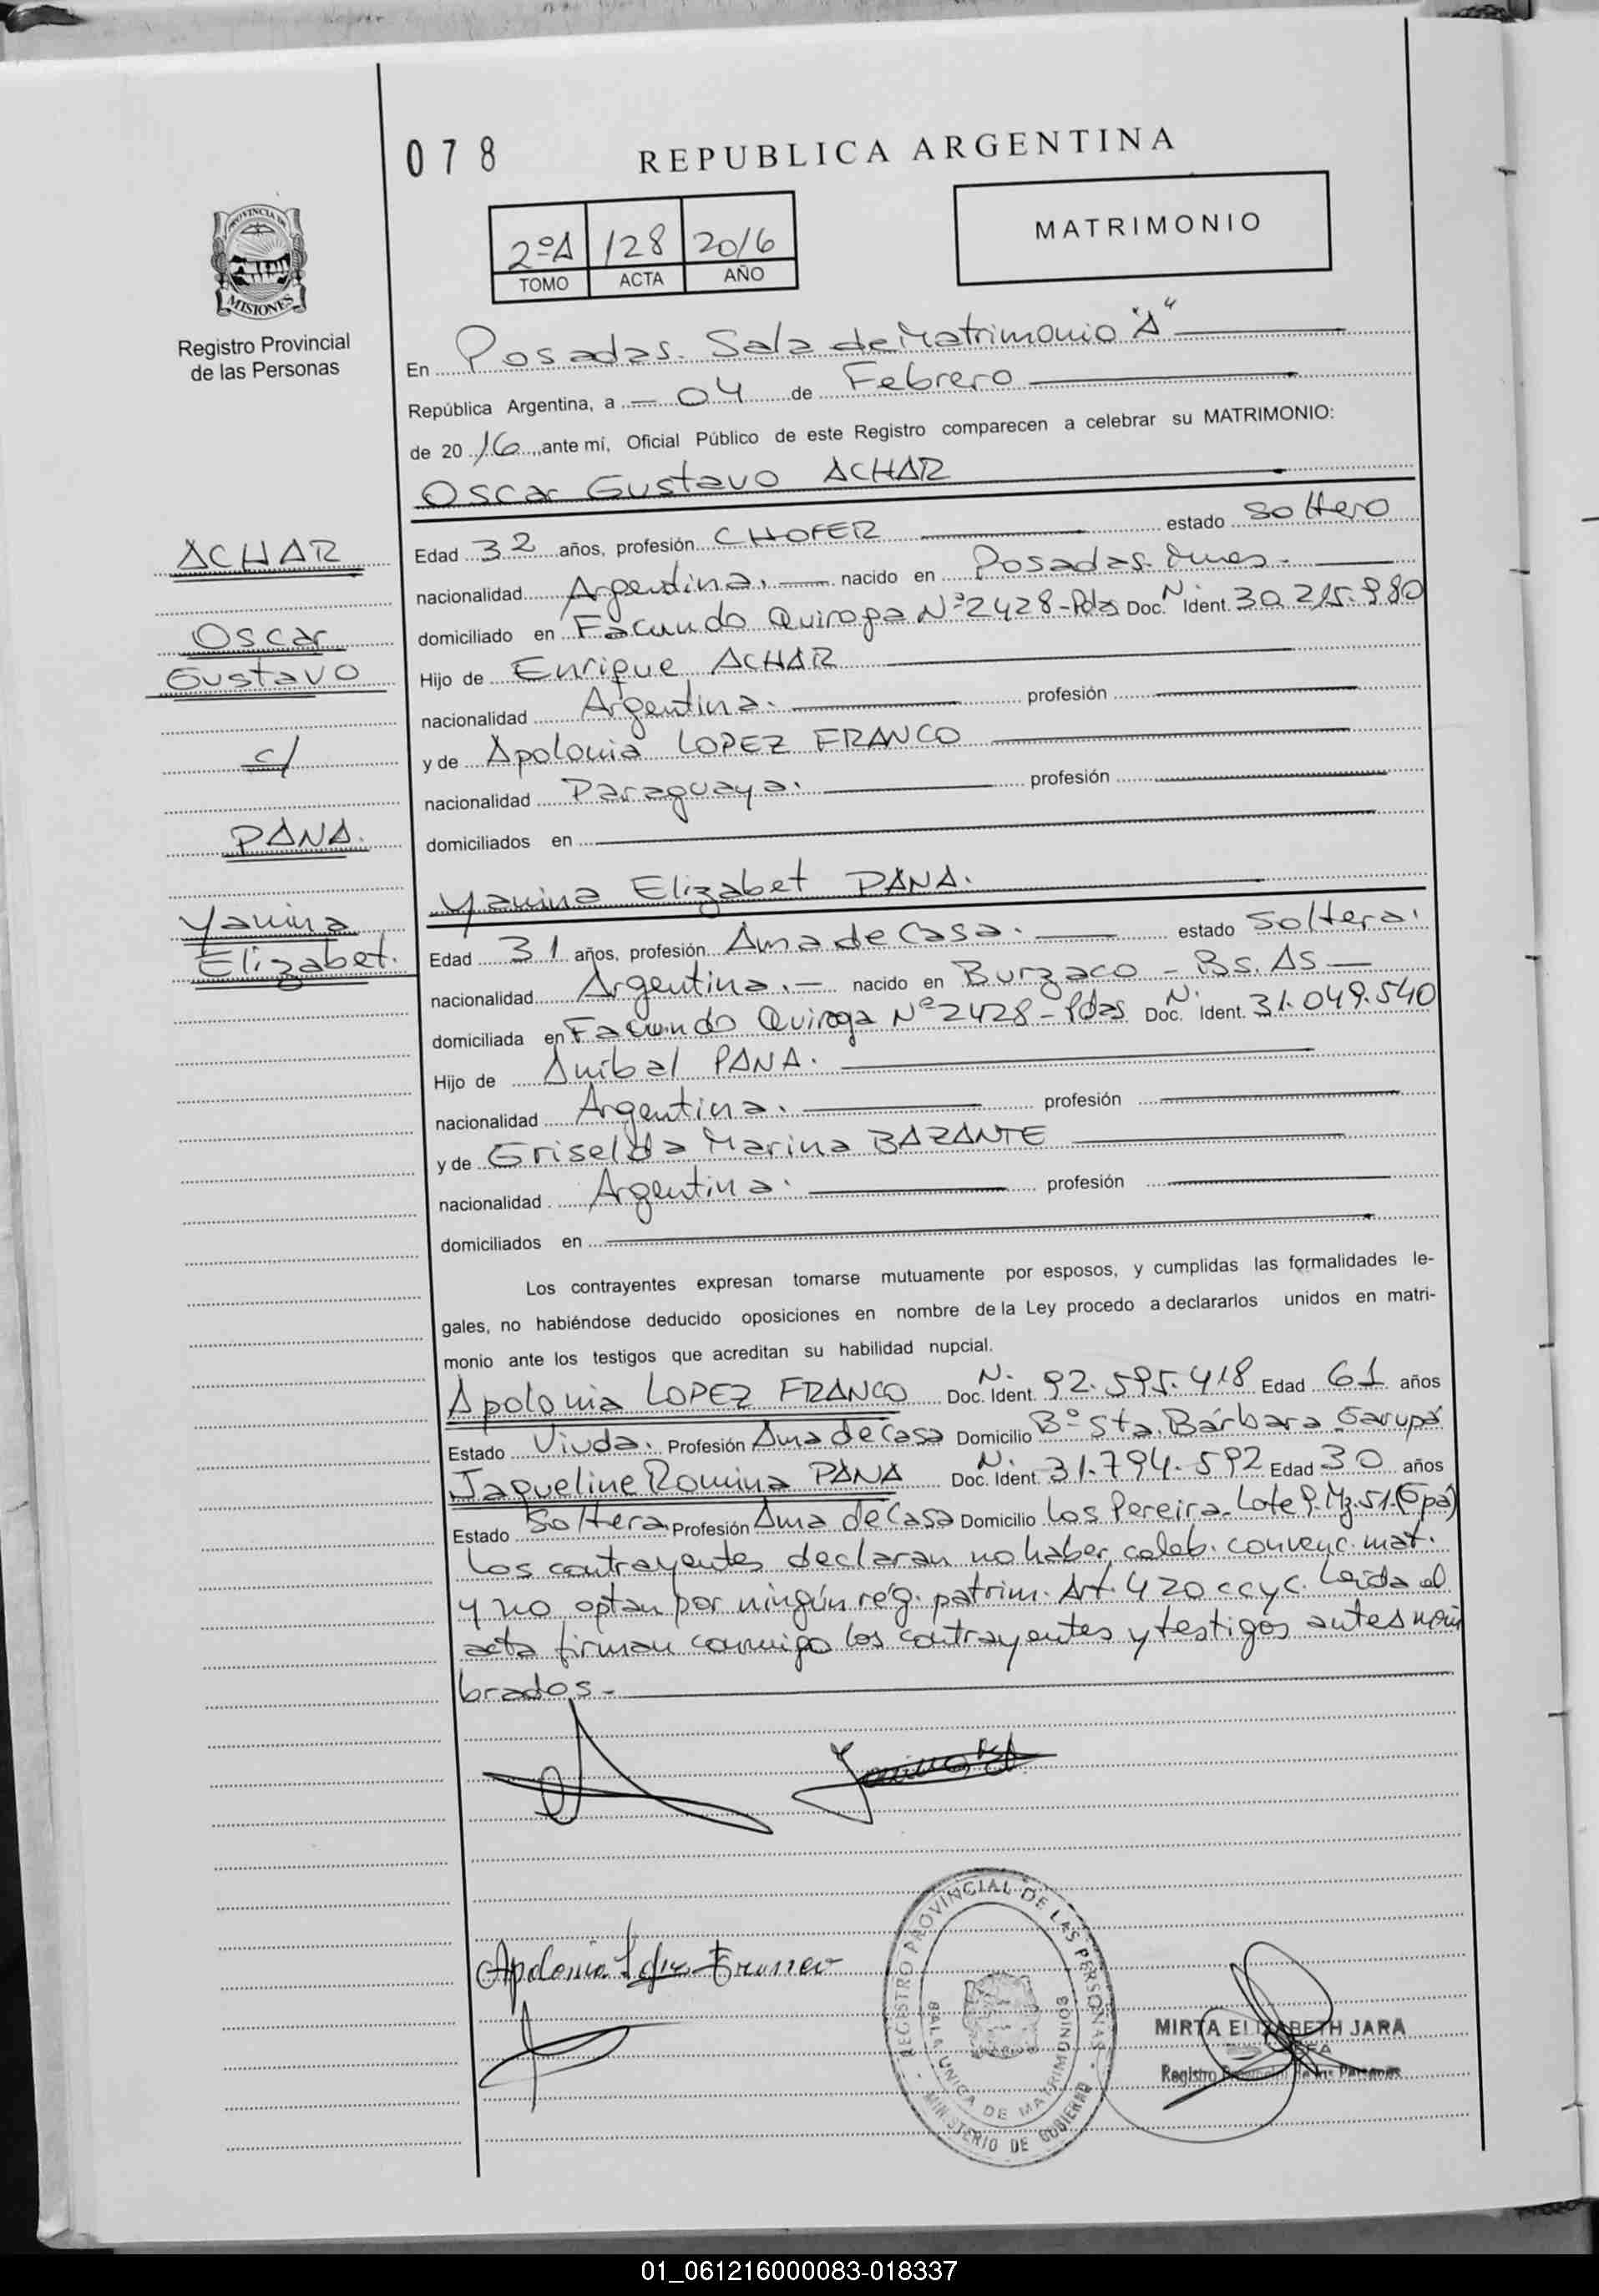 078
REPUBLICA ARGENTINA
2ºA 128 2016
TOMO ACTA AÑO
MATRIMONIO
PROVINCIA DE
MISIONES
Registro Provincial
de las Personas
En Posadas. Sala de Matrimonio "A"
República Argentina, a - 04 de Febrero
de 2016, ante mí, Oficial Público de este Registro comparecen a celebrar su MATRIMONIO:
Oscar Gustavo ACHAR
ACHAR
Oscar
Gustavo
c/
PANA.
Yanina
Elizabet.
Edad 32 años, profesión CHOFER estado Soltero
nacionalidad Argentina. nacido en Posadas. Mnes.
domiciliado en Facundo Quiroga Nº 2428-Pdas Doc. N. Ident. 30.215.980
Hijo de Enrique ACHAR
nacionalidad Argentina. profesión
y de Apolonia LOPEZ FRANCO
nacionalidad Paraguaya. profesión
domiciliados en
Yanina Elizabet PANA.
Edad 31 años, profesión Ama de Casa. estado Soltera.
nacionalidad Argentina. - nacido en Burzaco - Bs. As -
domiciliada en Facundo Quiroga Nº 2428 - Pdas Doc. N. Ident. 31.049.540
Hijo de Anibal PANA.
nacionalidad Argentina. profesión
y de Griselda Marina BAZANTE
nacionalidad Argentina. profesión
domiciliados en
Los contrayentes expresan tomarse mutuamente por esposos, y cumplidas las formalidades le-
gales, no habiéndose deducido oposiciones en nombre de la Ley procedo a declararlos unidos en matri-
monio ante los testigos que acreditan su habilidad nupcial.
Apolonia LOPEZ FRANCO Doc. N. Ident. 92.595.418 Edad 61 años
Estado Viuda. Profesión Ama de Casa Domicilio Bº Sta. Bárbara Garupá
Jaqueline Romina PANA Doc. N. Ident. 31.794.592 Edad 30 años
Estado Soltera Profesión Ama de Casa Domicilio Los Pereira. Lote 9. Mz. 51. (Gpá)
Los contrayentes declaran no haber celeb. convenc. mat.
y no optan por ningún rég. patrim. Art. 420 ccyc. Leida el
acta firman conmigo los contrayentes y testigos antes nom
brados.-
Apolonia Lopez Franco
REGISTRO PROVINCIAL DE LAS PERSONAS
SALA UNICA DE MATRIMONIOS
MINISTERIO DE GOBIERNO
MIRTA ELIZABETH JARA
Registro Provincial de las Personas
01_061216000083-018337